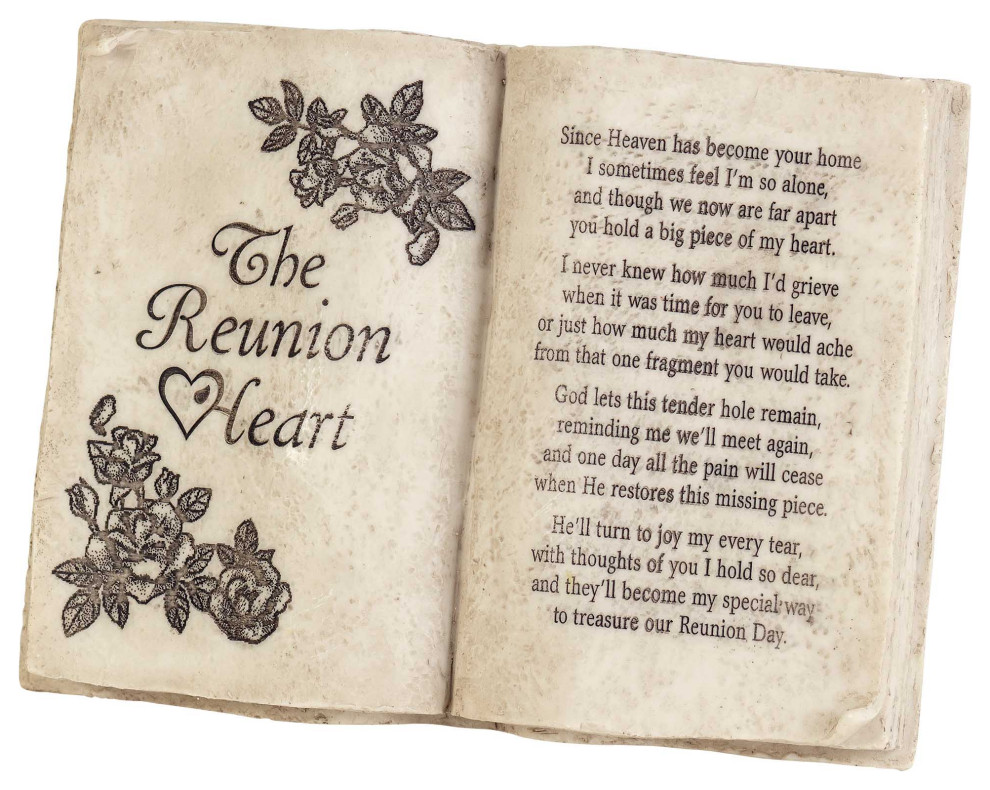 The
Reunion
Heart
Since Heaven has become your home
I sometimes feel I'm so alone,
and though we now are far apart
you hold a big piece of my heart.
I never knew how much I'd grieve
when it was time for you to leave,
or just how much my heart would ache
from that one fragment you would take.
God lets this tender hole remain,
reminding me we'll meet again,
and one day all the pain will cease
when He restores this missing piece.
He'll turn to joy my every tear,
with thoughts of you I hold so dear,
and they'll become my special way
to treasure our Reunion Day.